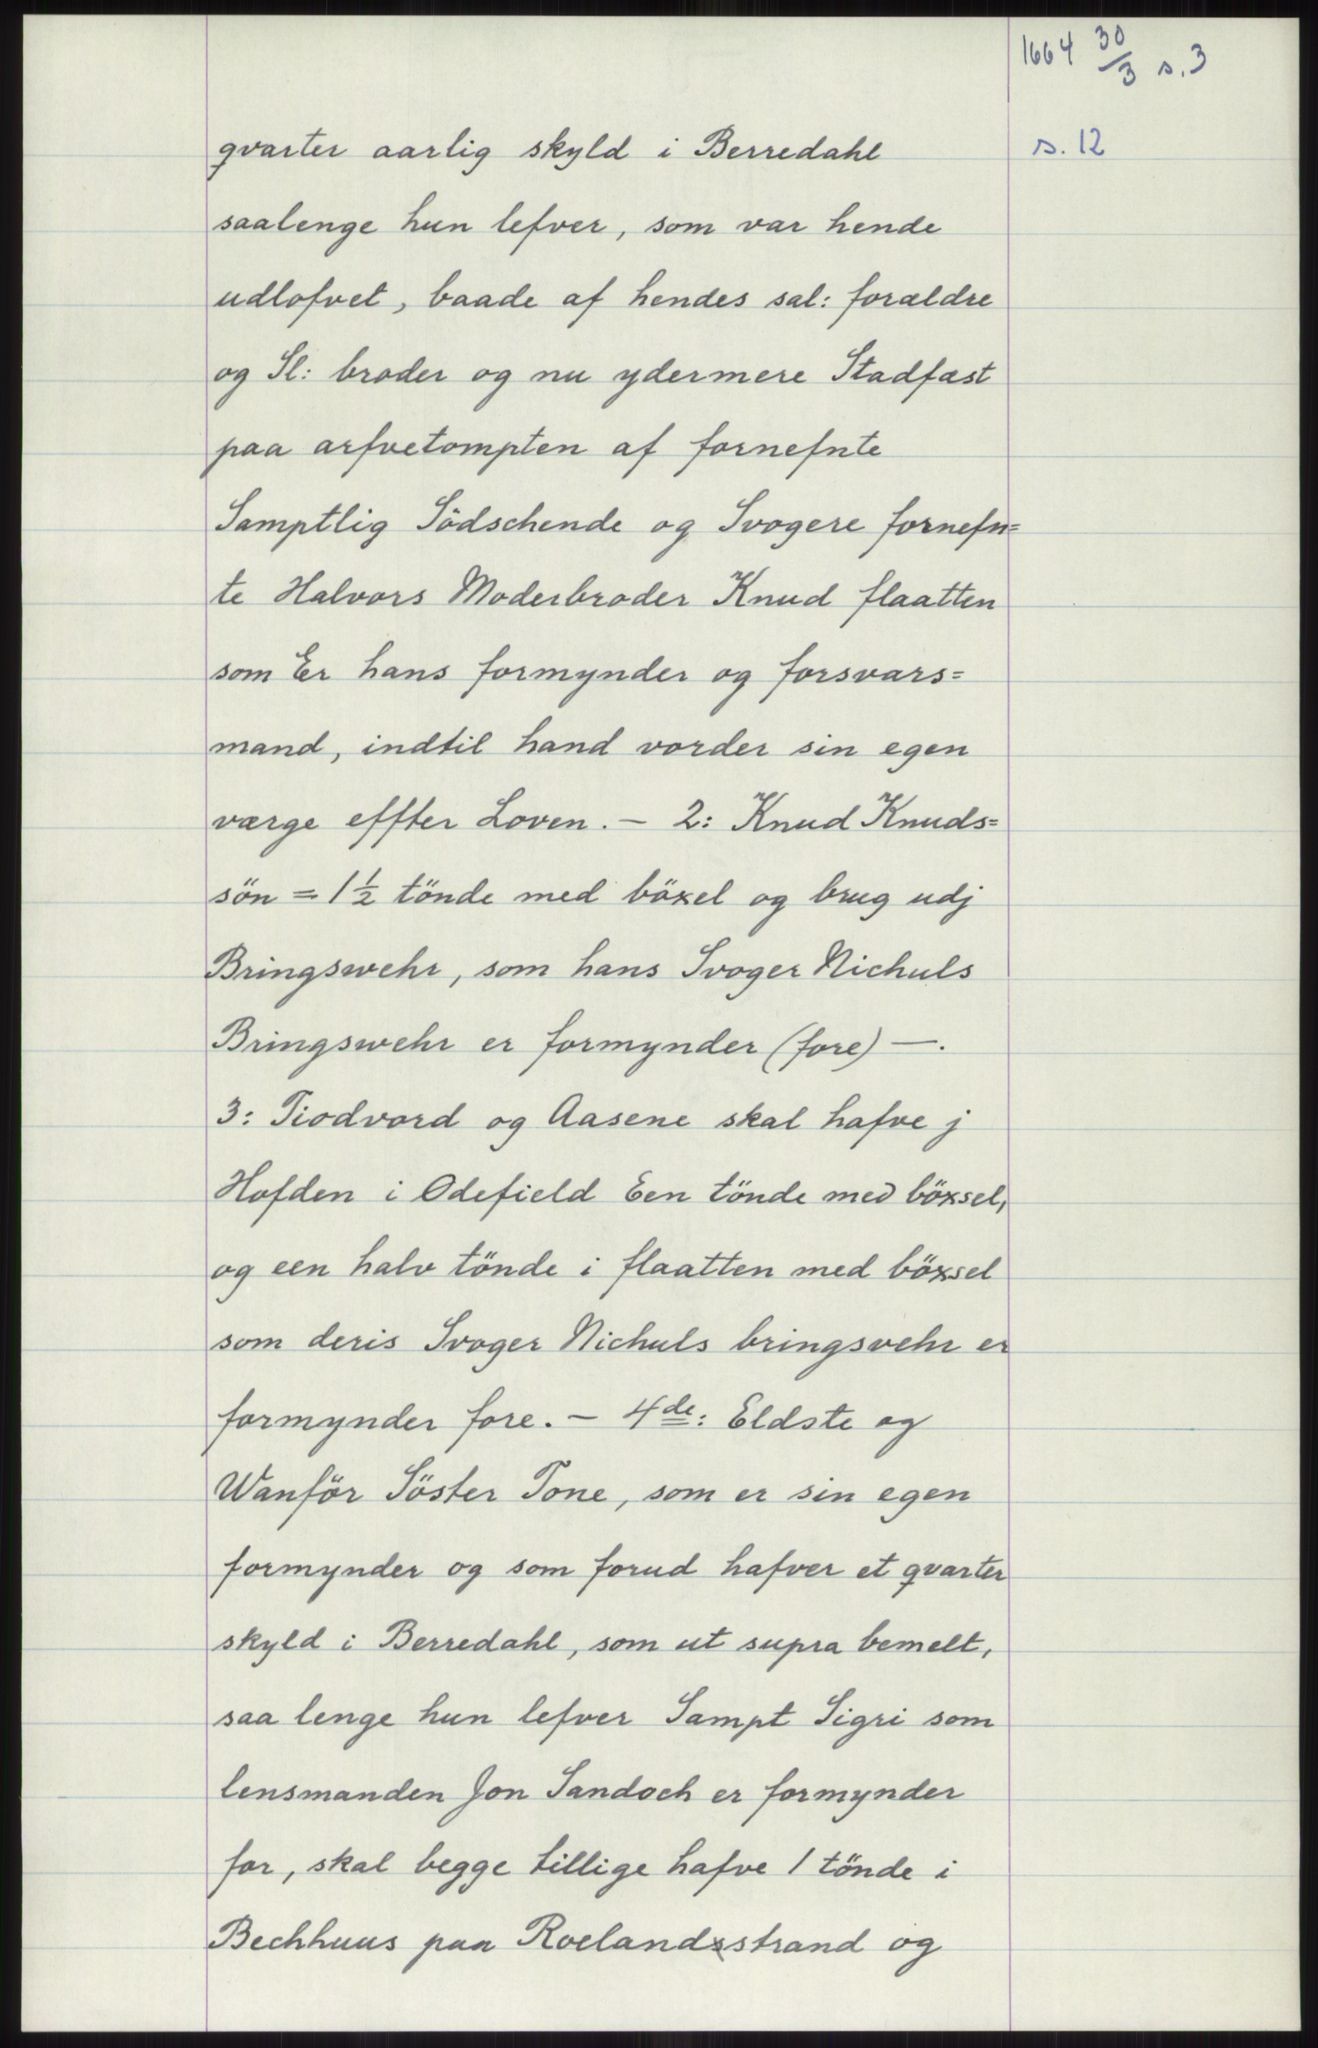 1664 30/3 s.3
s. 12
qvarter aarlig skyld i Berredahl
saalenge hun lefver, som var hende
udlofvet, baade af hendes sal: forældre
og Sl: broder og nu ydermere Stadfæst
paa arfvetompten af fornefnte
Samptlig Södschende og Svogere fornefn=
te Halvors Moderbroder Knud flaatten
som Er hans formynder og forsvars=
mand, indtil hand vorder sin egen
værge effter Loven. – 2: Knud Knuds=
sön = 1½ tönde med böxel og brug udj
Bringswehr, som hans Svoger Nichuls
Bringswehr er formynder (fore) —.
3: Tiodvord og Aasene skal hafve j
Hofden i Odefield Een tönde med böxsel,
og een halv tönde i flaatten med böxsel
som deris Svoger Nichuls bringsvehr er
formynder fore. – 4de: Eldste og
Wanför Söster Tone, som er sin egen
formynder og som forud hafver et qvarter
skyld i Berredahl, som ut supra bemelt,
saa lenge hun lefver Sampt Sigri som
lensmanden Jon Sandoch er formynder
for, skal begge tillige hafve 1 tönde i
Bechhuus paa Roelandsstrand og